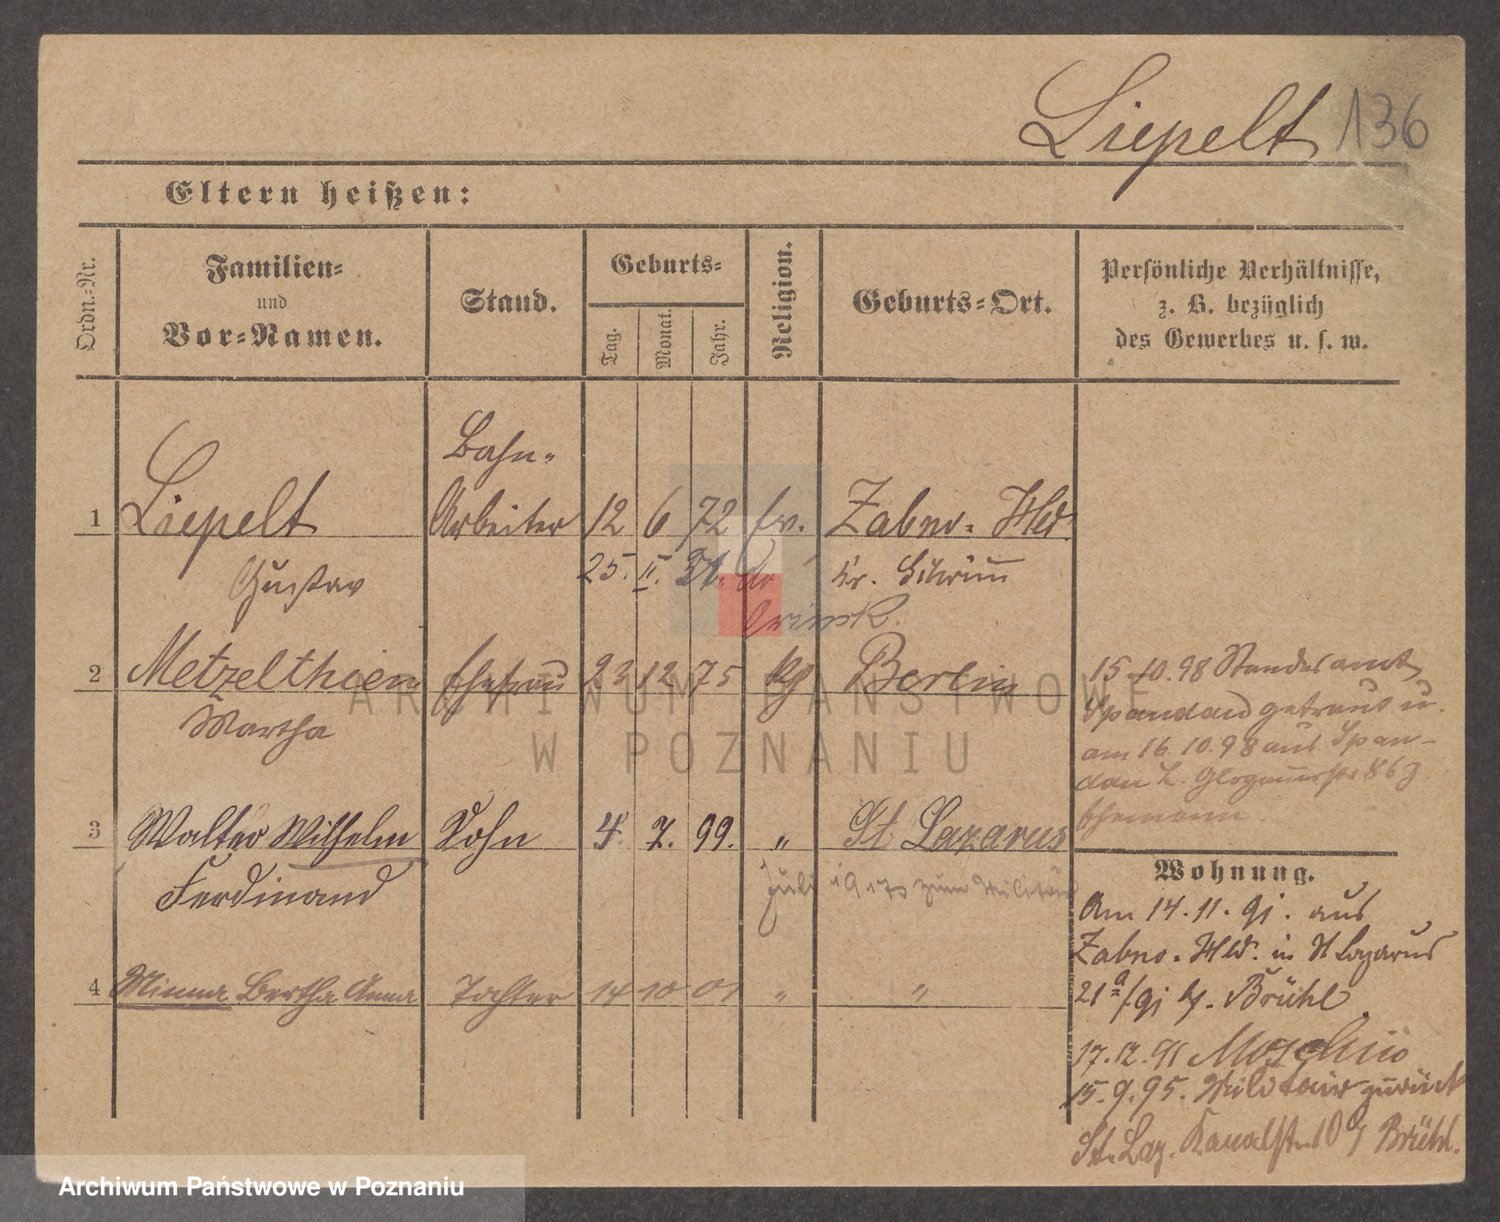 Liepelt 136
Eltern heißen:
Ordn.-Nr.
Familien-
und
Vor-Namen.
Stand.
Geburts-
Tag.
Monat.
Jahr.
Religion.
Geburts-Ort.
Persönliche Verhältnisse,
z. B. bezüglich
des Gewerbes u. s. w.
Bahn-
1 Liepelt Arbeiter 12 6 72 ev. Zabno-Hld.
Gustav 25. II. Kr. Schrimm
2 Metzelthien Ehefrau 23 12 75 Berlin
Martha
15.10.98 Standesamt
Spandau getraut u.
am 16.10.98 aus Span-
dau z. Glogauerstr 86
Ehemann.
3 Walter Wilhelm Sohn 4. 7. 99. " St Lazarus
Ferdinand
Juli 1917 zum Militär
4 Minna Bertha Anna Tochter 14 10 01 " "
Wohnung.
Am 14.11.91. aus
Zabno-Hld. in St Lazarus
21a/91 b/. Brühl
17.12.91 Moschin
15.9.95. Militair zurück
St. Laz. Kanalstr. 10 b/ Brühl.
ARCHIWUM PAŃSTWOWE
W POZNANIU
Archiwum Państwowe w Poznaniu